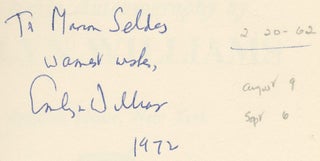 To Marian Seldes
warmest wishes,
Emlyn Williams
1972
2 20-62
August 9
Sept 6